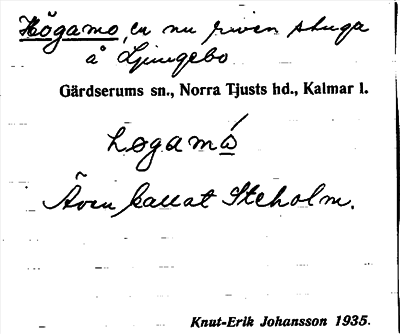 Högamo, en nu riven stuga
å Ljungebo
Gärdserums sn., Norra Tjusts hd., Kalmar l.
hogamó
Även kallat Steholm.
Knut-Erik Johansson 1935.